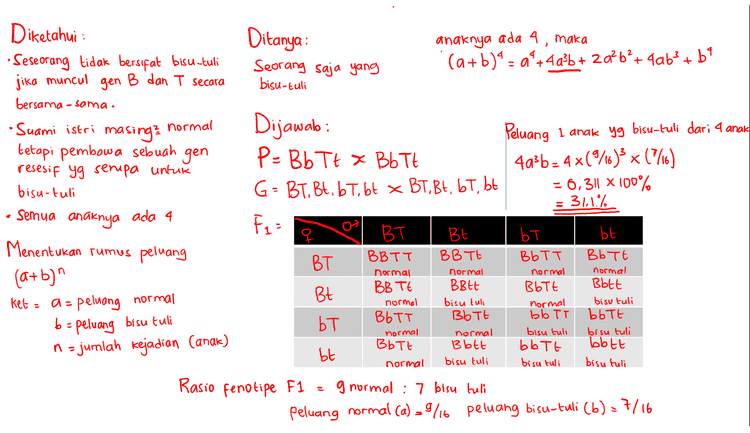 Diketahui:
• Seseorang tidak bersifat bisu-tuli
jika muncul gen B dan T secara
bersama-sama.
• Suami istri masing² normal
tetapi pembawa sebuah gen
resesif yg serupa untuk
bisu-tuli
• Semua anaknya ada 4
Menentukan rumus peluang
(a+b)ⁿ
ket = a = peluang normal
b = peluang bisu tuli
n = jumlah kejadian (anak)
Ditanya:
Seorang saja yang
bisu-tuli
anaknya ada 4, maka
(a+b)⁴ = a⁴ + 4a³b + 2a²b² + 4ab³ + b⁴
Dijawab:
P = BbTt × BbTt
G = BT, Bt, bT, bt × BT, Bt, bT, bt
Peluang 1 anak yg bisu-tuli dari 4 anak
4a³b = 4 × (9/16)³ × (7/16)
= 0,311 × 100%
= 31,1%
F1 =
♀ ♂ BT Bt bT bt
BT BBTT BBTt BbTT BbTt
normal normal normal normal
Bt BBTt BBtt BbTt Bbtt
normal bisu tuli normal bisu tuli
bT BbTT BbTt bbTT bbTt
normal normal bisu tuli bisu tuli
bt BbTt Bbtt bbTt bbtt
normal bisu tuli bisu tuli bisu tuli
Rasio fenotipe F1 = 9 normal : 7 bisu tuli
Peluang normal (a) = 9/16 peluang bisu-tuli (b) = 7/16